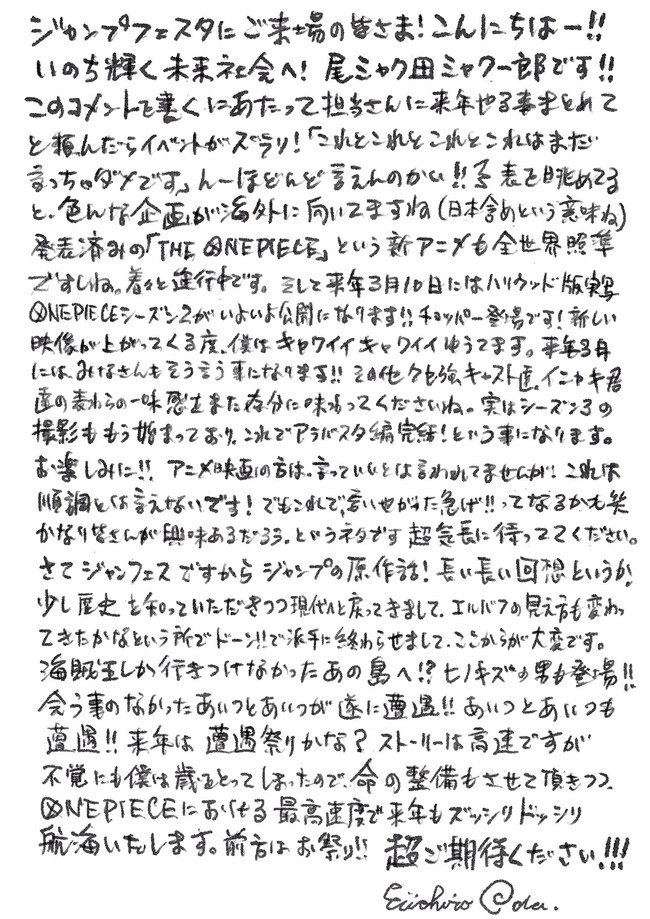 ジャンプフェスタにご来場の皆さま!こんにちはー!!
いのち輝く未来社会へ!尾ミャク田ミャク一郎です!!
このコメントを書くにあたって担当さんに来年やる事まとめて
と頼んだらイベントがズラリ!「これとこれとこれとこれはまだ
言っちゃダメです」んーほどんど言えんのかい!!予表を眺めてる
と、色んな企画が海外に向いてますね(日本含めという意味ね)
発表済みの「THE ONE PIECE」という新アニメも全世界照準
ですしね。着々と進行中です。そして来年3月10日にはハリウッド版実写
ONE PIECEシーズン2がいよいよ公開になります!!チョッパー登場です!新しい
映像が上がってくる度、僕はキャワイイキャワイイゆうてます。来年3月
には、みなさんもそう言う事になります!!その他クセ強キャスト達、イニャキ君
達の麦わらの一味烈士また存分に味わってくださいね。実はシーズン3の
撮影ももう始まっており、これでアラバスタ編完結!という事になります。
お楽しみに!!アニメ映画の方は、言っていいとは言われてませんが、これは
順調とは言えないです!でもこれで、言いやがった急げ!!ってなるかも笑
かなり皆さんが興味あるだろう、というネタです超気長に待っててください。
さてジャンフェスですからジャンプの原作話!長い長い回想というか、
少し歴史を知っていただきつつ現代へと戻ってきまして、エルバフの見え方も変わっ
てきたかなという所でドーン!!で派手に終わらせまして、ここからが大変です。
海賊王しか行きつけなかったあの島へ!?ヒノキズの男も登場!!
会う事のなかったあいつとあいつが遂に遭遇!!あいつとあいつも
遭遇!!来年は遭遇祭りかな?ストーリーは高速ですが
不覚にも僕は歳をとってしまったので、命の整備もさせて頂きつつ、
ONE PIECEにおける最高速度で来年もズッシリドッシリ
航海いたします。前方はお祭り!!超ご期待ください!!!
Eiichiro Oda.